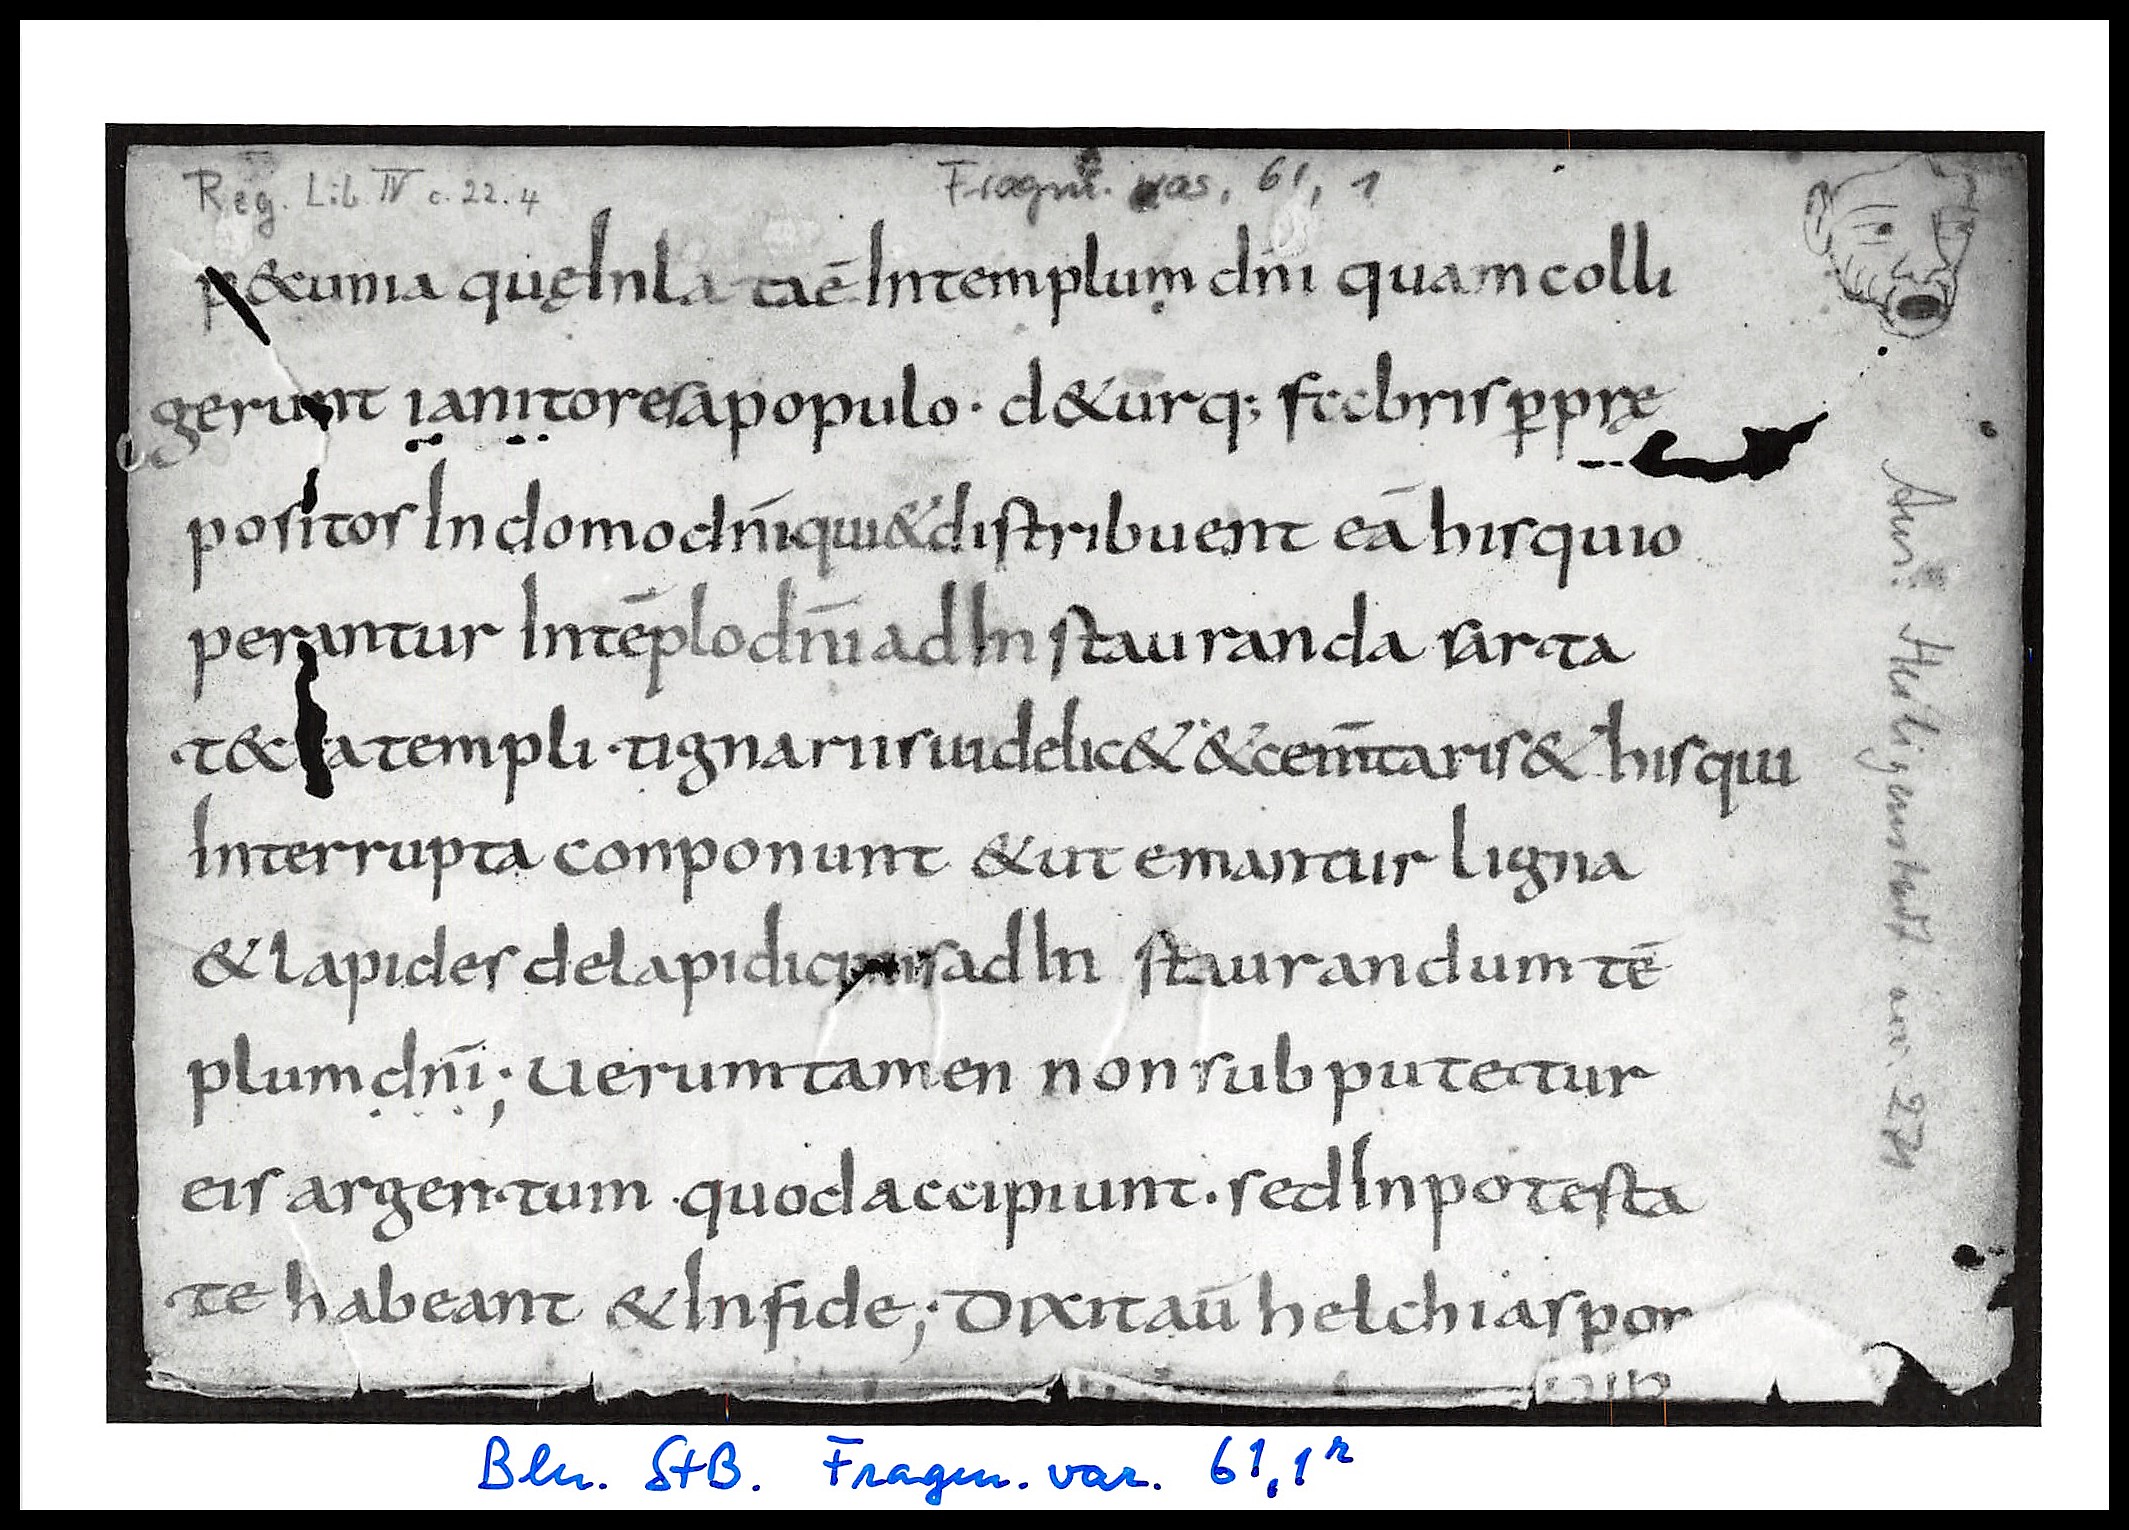 Reg. Lib. IV c. 22. 4
Fragm. var. 61, 1
p&cunia quę Inlata ē Intemplum dn̄i quam colli
gerunt ianitores a populo · d&urq; fccbris p̱ prę
positos In domo dn̄i qui & distribuent eā his qui o
perantur Intēplo dn̄i ad Instauranda sarta
t&cta templi · tignariis uidelic& & cem̄taris & his qui
Interrupta conponunt & ut emantur ligna
& lapides delapidicinis ad Instaurandum tē
plum dn̄i; Uerumtamen non subputetur
eis argentum quod accipiunt · sed In potesta
te habeant & Infide; Dixit aū helchias pon
Bln. StB. Fragm. var. 61,1r